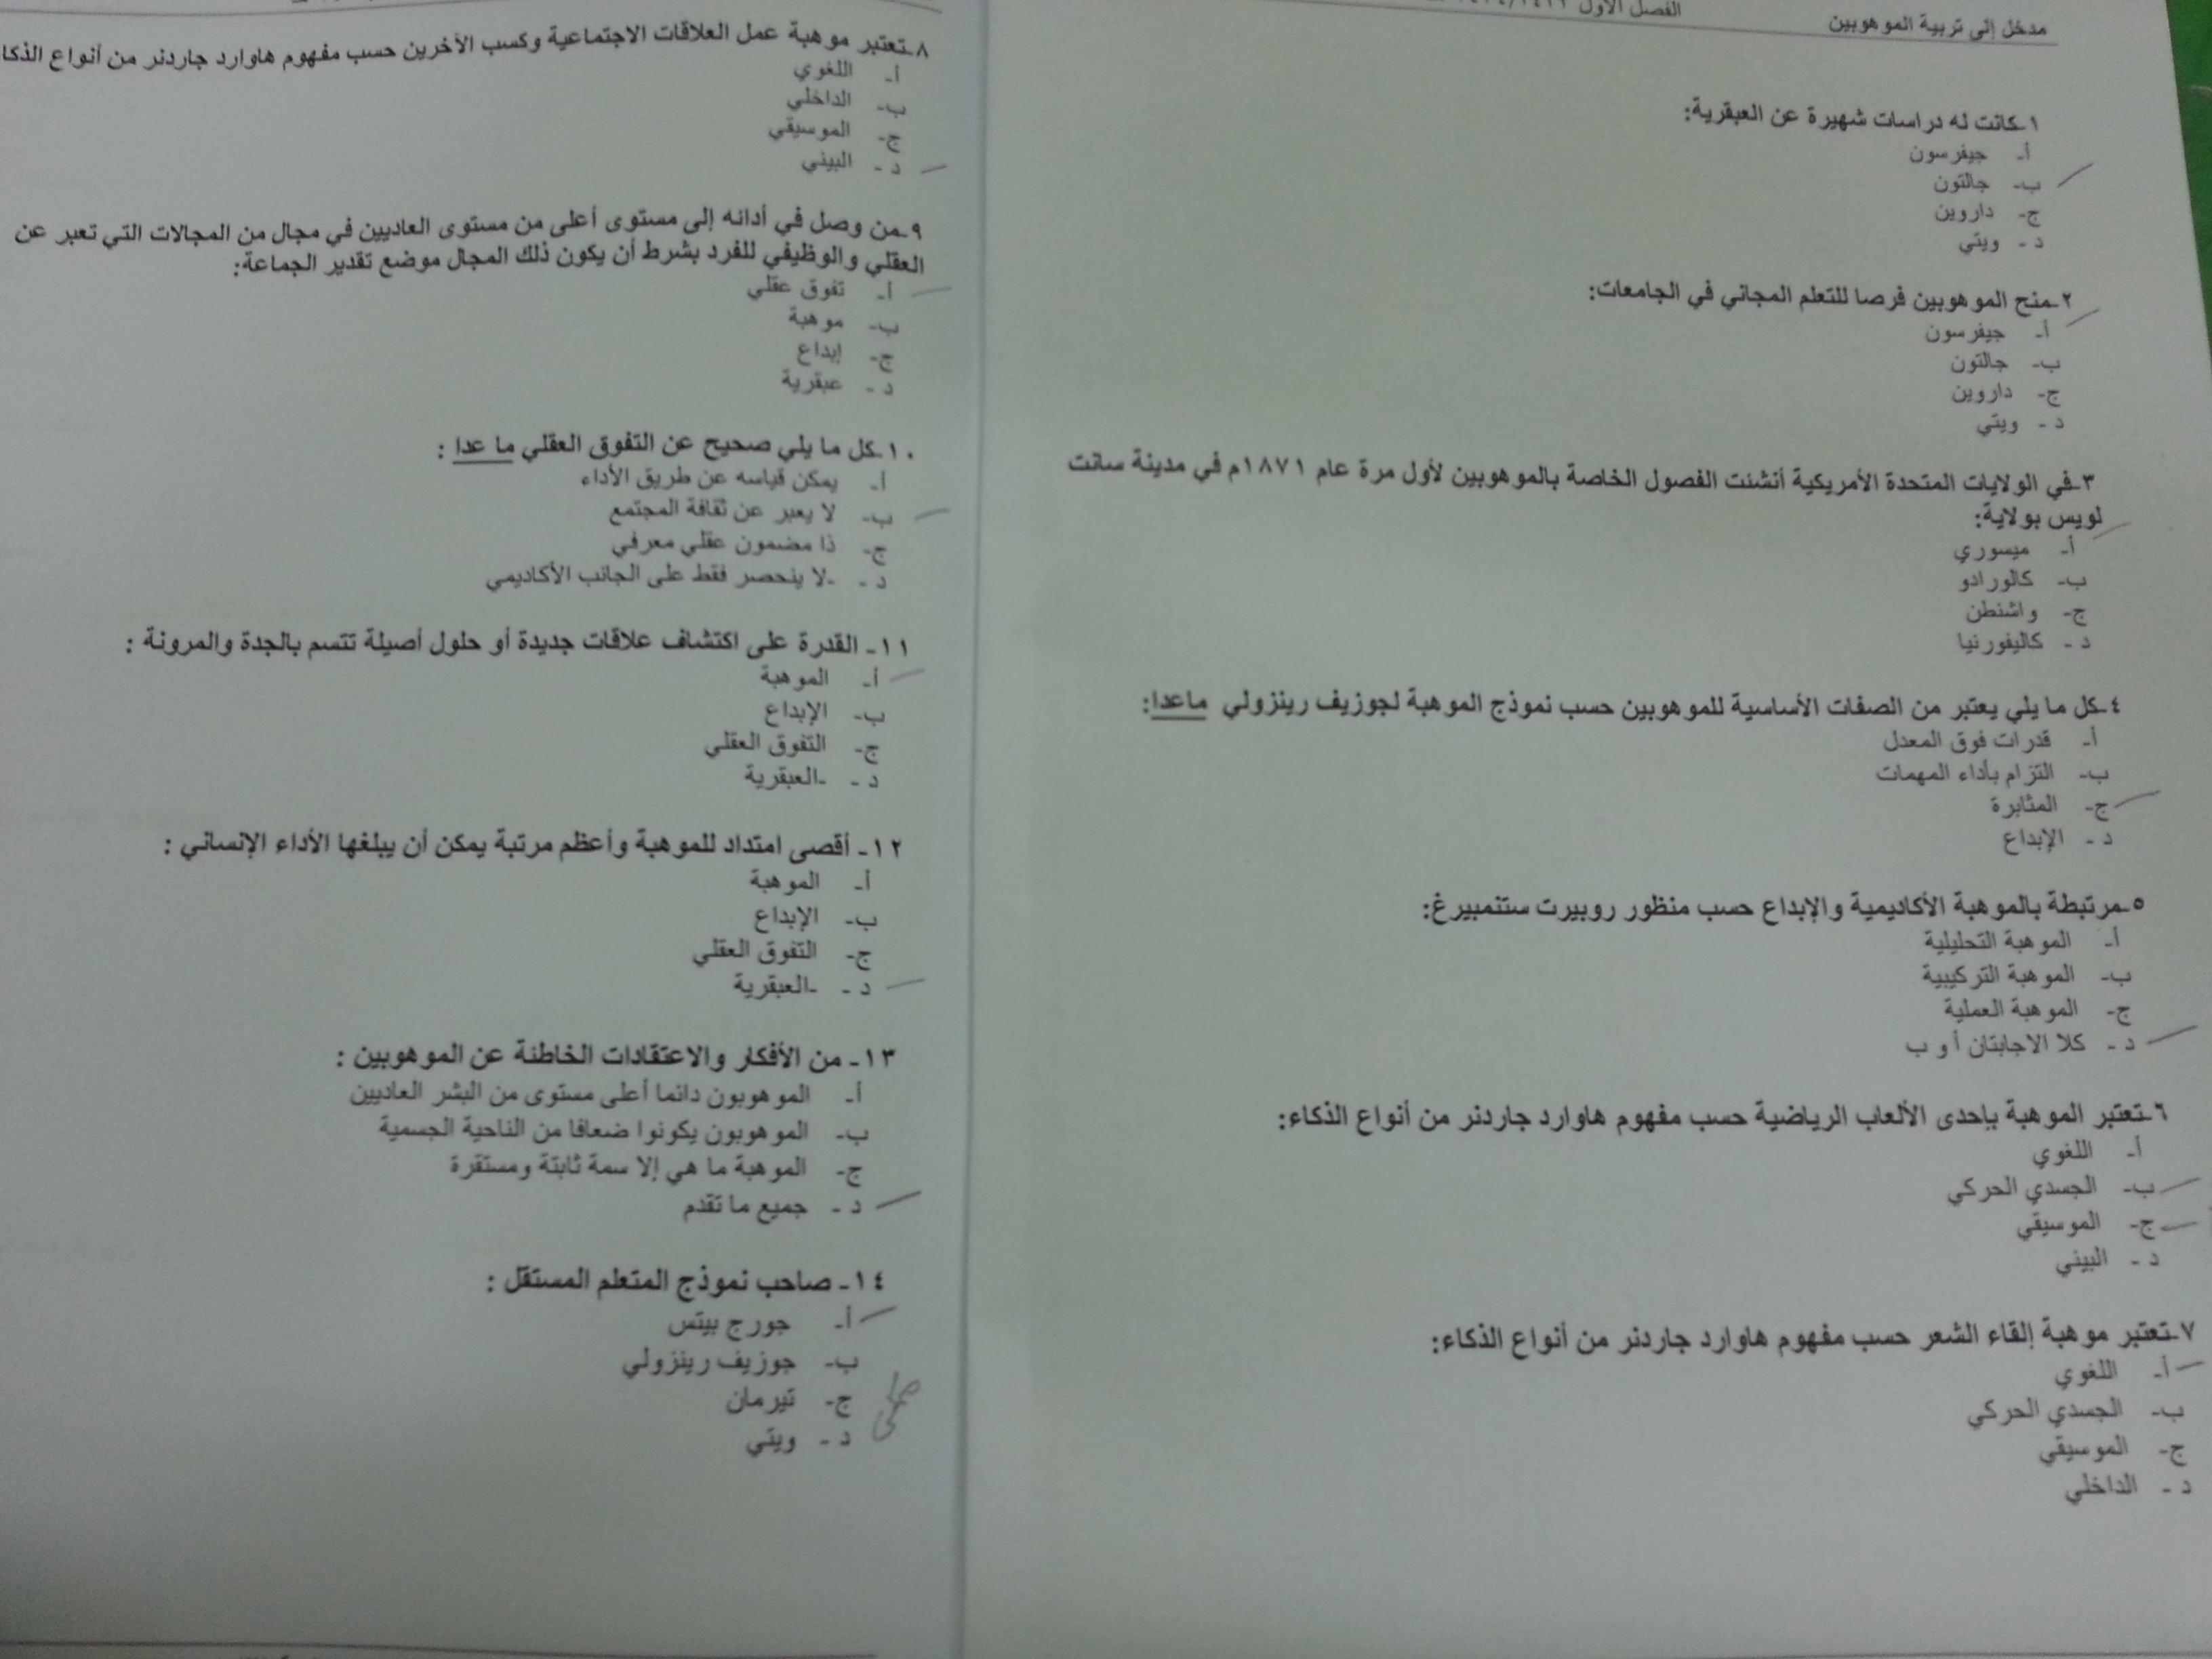 مدخل إلى تربية الموهوبين
الفصل الأول
١ـكانت له دراسات شهيرة عن العبقرية:
أ- جيفرسون
ب- جالتون
ج- داروين
د - ويتي
٢ـمنح الموهوبين فرصا للتعلم المجاني في الجامعات:
أ- جيفرسون
ب- جالتون
ج- داروين
د - ويتي
٣ـفي الولايات المتحدة الأمريكية أنشئت الفصول الخاصة بالموهوبين لأول مرة عام ١٨٧١م في مدينة سانت
لويس بولاية:
أ- ميسوري
ب- كالورادو
ج- واشنطن
د - كاليفورنيا
٤ـكل ما يلي يعتبر من الصفات الأساسية للموهوبين حسب نموذج الموهبة لجوزيف رينزولي ماعدا:
أ- قدرات فوق المعدل
ب- التزام بأداء المهمات
ج- المثابرة
د - الإبداع
٥ـمرتبطة بالموهبة الأكاديمية والإبداع حسب منظور روبيرت ستنمبيرغ:
أ- الموهبة التحليلية
ب- الموهبة التركيبية
ج- الموهبة العملية
د - كلا الاجابتان أ و ب
٦ـتعتبر الموهبة بإحدى الألعاب الرياضية حسب مفهوم هاوارد جاردنر من أنواع الذكاء:
أ- اللغوي
ب- الجسدي الحركي
ج- الموسيقي
د - البيني
٧ـتعتبر موهبة إلقاء الشعر حسب مفهوم هاوارد جاردنر من أنواع الذكاء:
أ- اللغوي
ب- الجسدي الحركي
ج- الموسيقي
د - الداخلي
٨ـتعتبر موهبة عمل العلاقات الاجتماعية وكسب الأخرين حسب مفهوم هاوارد جاردنر من أنواع الذكا
أ- اللغوي
ب- الداخلي
ج- الموسيقي
د - البيني
٩ـمن وصل في أدائه إلى مستوى أعلى من مستوى العاديين في مجال من المجالات التي تعبر عن
العقلي والوظيفي للفرد بشرط أن يكون ذلك المجال موضع تقدير الجماعة:
أ- تفوق عقلي
ب- موهبة
ج- إبداع
د - عبقرية
١٠ـكل ما يلي صحيح عن التفوق العقلي ما عدا :
أ- يمكن قياسه عن طريق الأداء
ب- لا يعبر عن ثقافة المجتمع
ج- ذا مضمون عقلي معرفي
د - -لا ينحصر فقط على الجانب الأكاديمي
١١- القدرة على اكتشاف علاقات جديدة أو حلول أصيلة تتسم بالجدة والمرونة :
أ- الموهبة
ب- الإبداع
ج- التفوق العقلي
د - -العبقرية
١٢- أقصى امتداد للموهبة وأعظم مرتبة يمكن أن يبلغها الأداء الإنساني :
أ- الموهبة
ب- الإبداع
ج- التفوق العقلي
د - -العبقرية
١٣- من الأفكار والاعتقادات الخاطئة عن الموهوبين :
أ- الموهوبون دائما أعلى مستوى من البشر العاديين
ب- الموهوبون يكونوا ضعافا من الناحية الجسمية
ج- الموهبة ما هي إلا سمة ثابتة ومستقرة
د - جميع ما تقدم
١٤- صاحب نموذج المتعلم المستقل :
أ- جورج بيتس
ب- جوزيف رينزولي
ج- تيرمان
د - ويتي